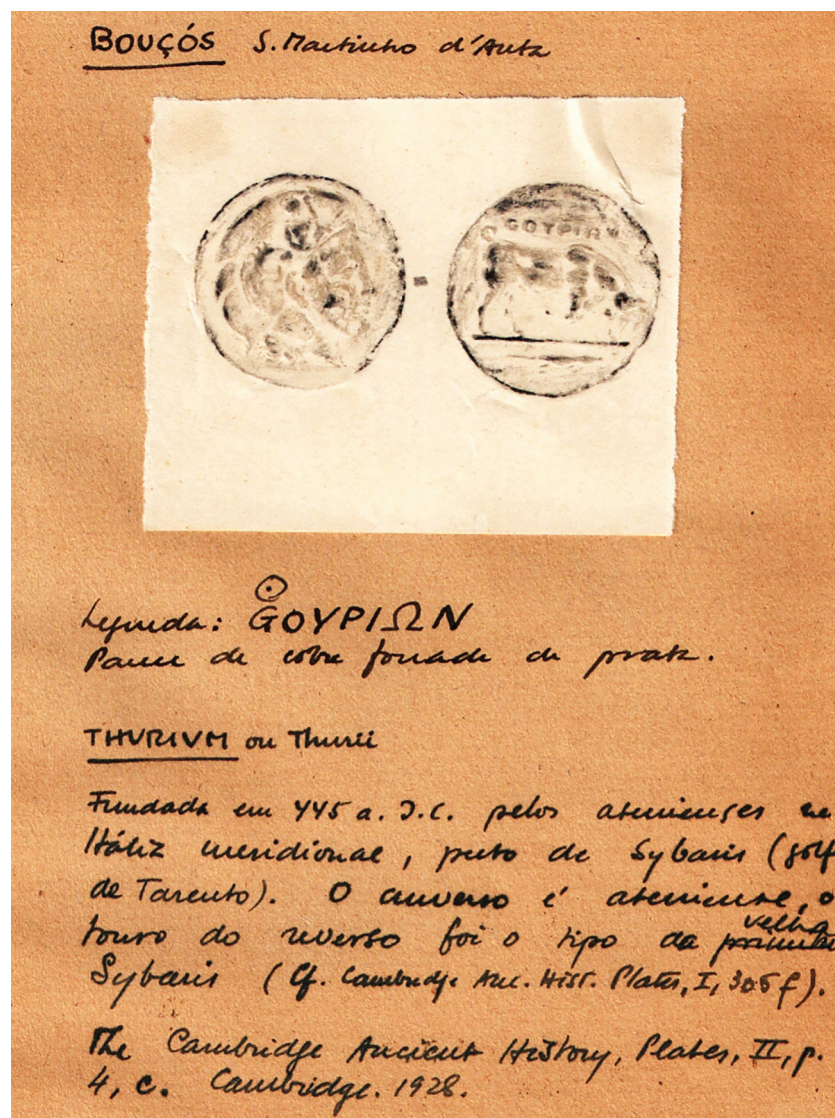 BOUÇÓS S. Martinho d'Anta
GOYPIΩ
Legenda: GOYPIΩN
⊙
Parece de cobre forrada de prata.
THURIUM ou Thurii
Fundada em 445 a. J.C. pelos atenienses na
Itália meridional, perto de Sybaris (golf
de Tarento). O anverso é ateniense, o
touro do reverso foi o tipo da velha
Sybaris (Cf. Cambridge Anc. Hist. Plates, I, 305 f).
The Cambridge Ancient History, Plates, II, p.
4, c. Cambridge. 1928.